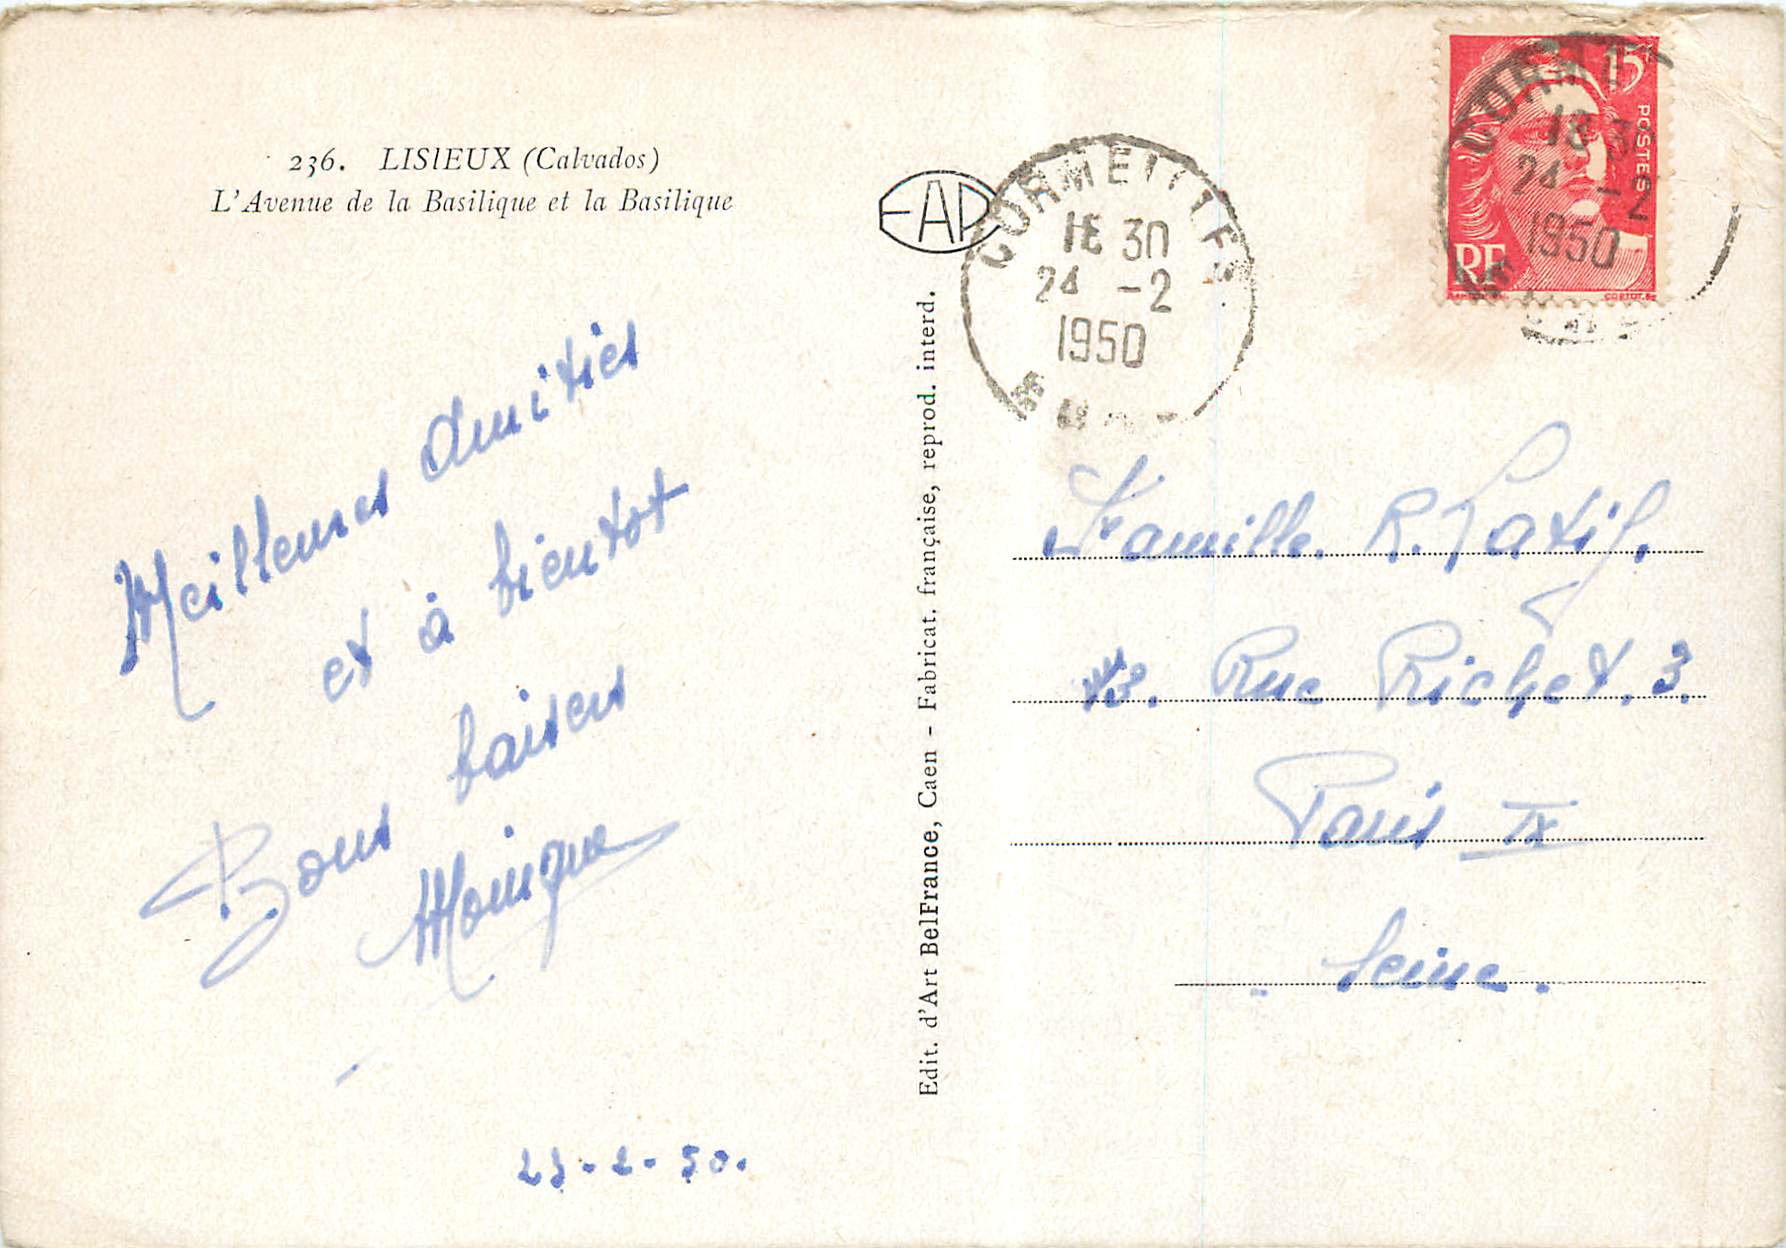 236. LISIEUX (Calvados)
L'Avenue de la Basilique et la Basilique
Meilleures Amitiés
et à bientot
Bons baisers
Monique
23-2-50.
Edit. d'Art BelFrance, Caen - Fabricat. française, reprod. interd.
CORMEILLES
18 30
24 -2
1950
15F
POSTES
RF
18 30
24 -2
1950
Famille R.
Rue Richer. 3.
Paris IX
Seine.